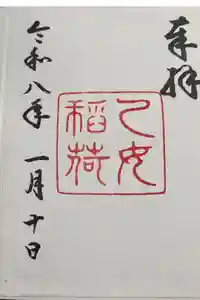 奉拝
乙女
稲荷
令和八年 一月十日